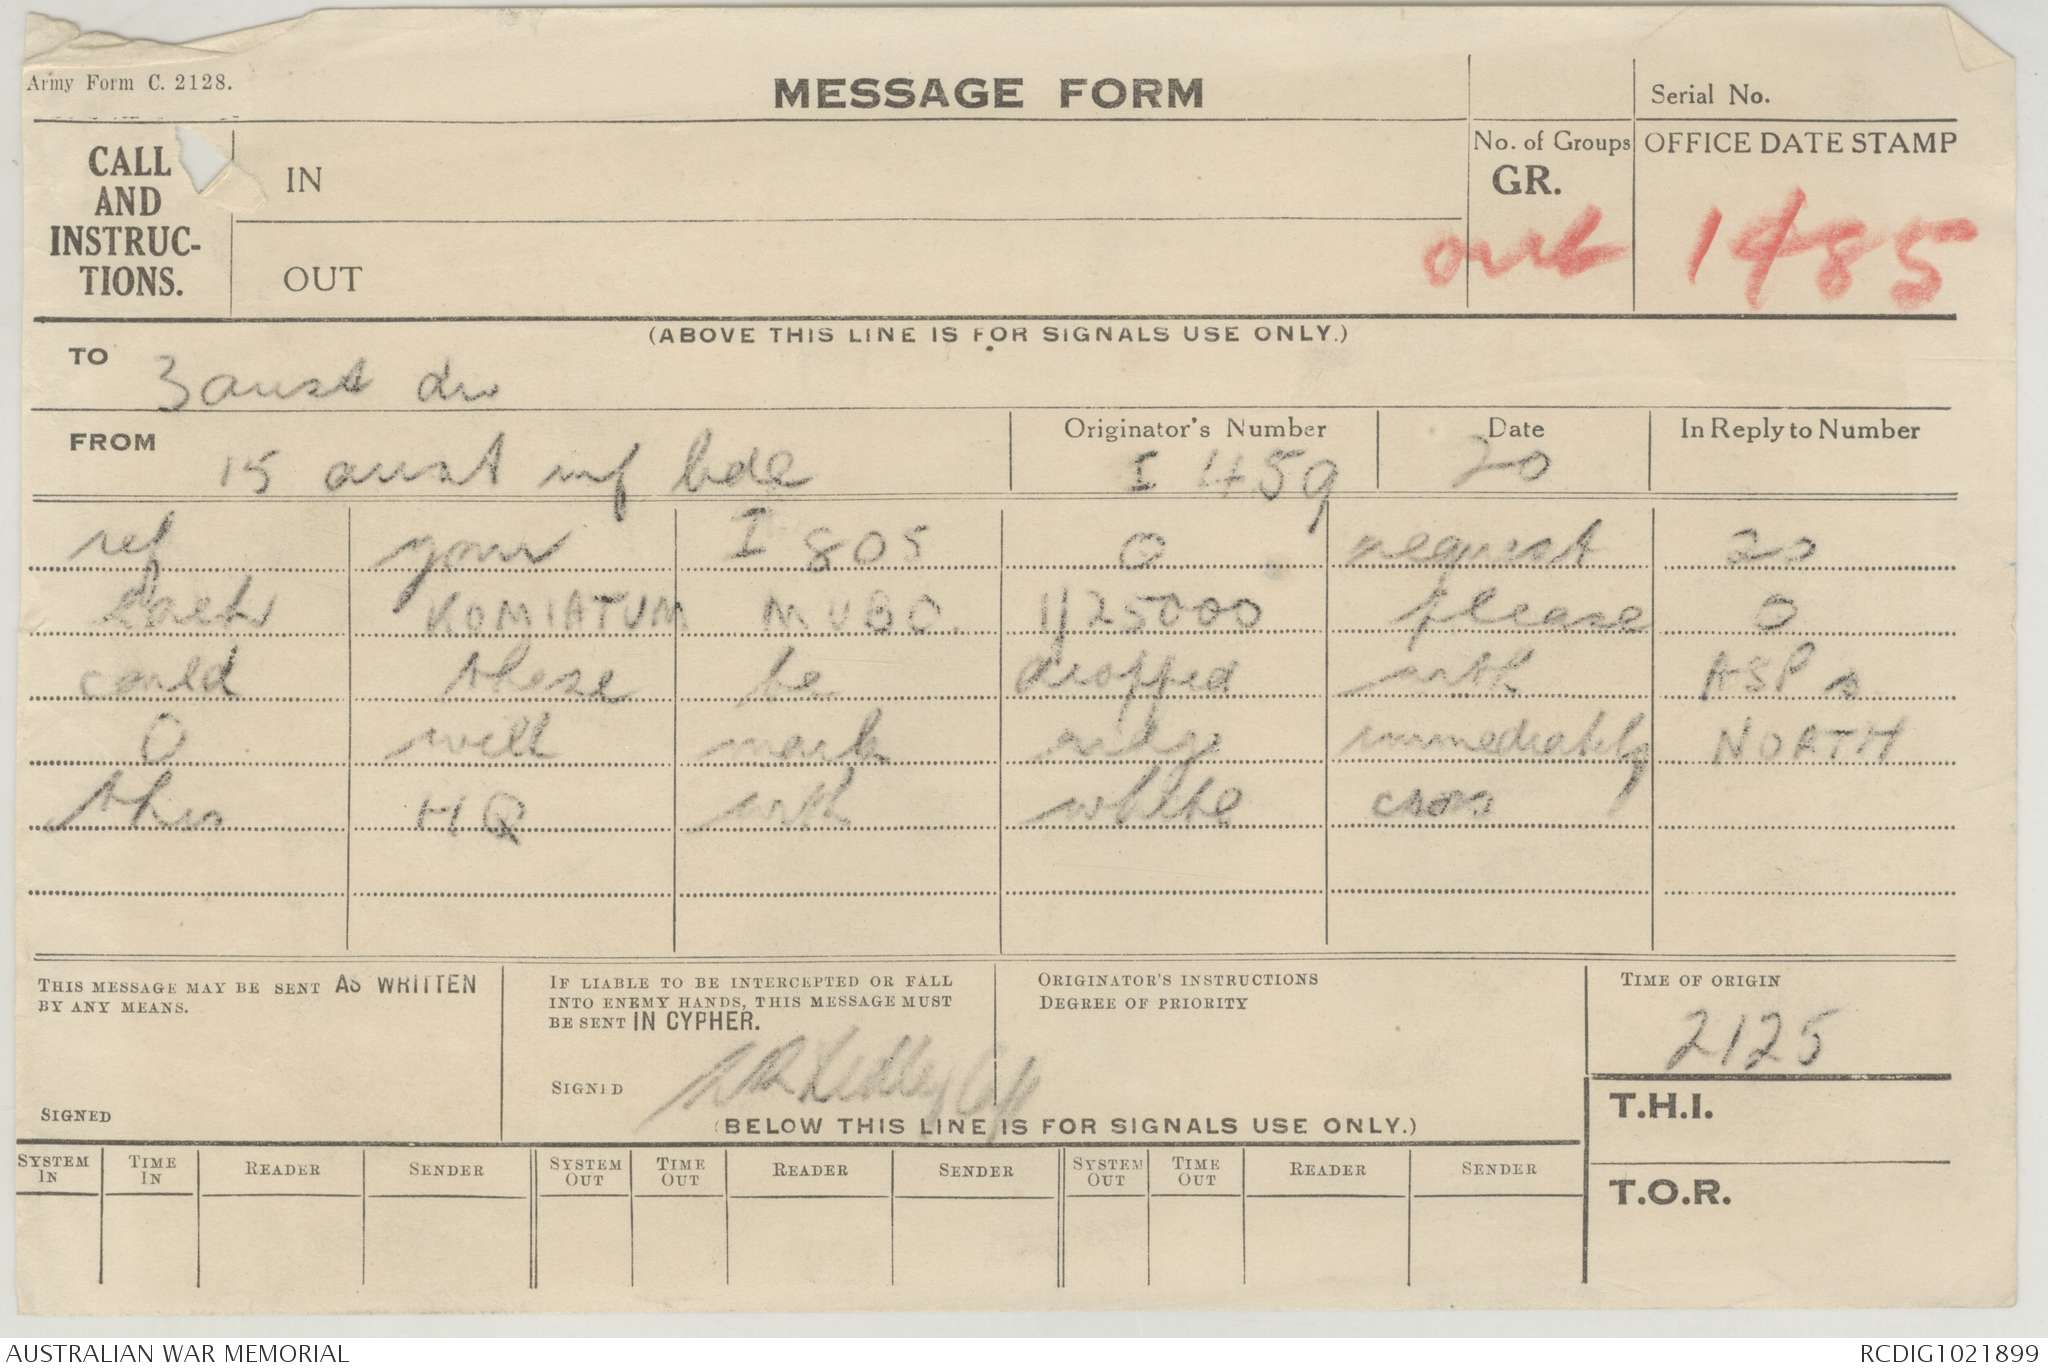 Army Form C. 2128.
MESSAGE FORM
Serial No.
CALL AND INSTRUC-TIONS.
IN
OUT
No. of Groups GR.
OFFICE DATE STAMP
out 1485
(ABOVE THIS LINE IS FOR SIGNALS USE ONLY.)
TO 3 aust div
FROM 15 aust inf bde
Originator's Number I 1459
Date 20
In Reply to Number
ref your I 805 O request 20
each KOMIATUM MUBO. 1/25000 please O
could these be dropped with ASPs
O will mark ridge immediately NORTH
this HQ with white cross
THIS MESSAGE MAY BE SENT AS WRITTEN BY ANY MEANS.
SIGNED
IF LIABLE TO BE INTERCEPTED OR FALL INTO ENEMY HANDS, THIS MESSAGE MUST BE SENT IN CYPHER.
SIGNED
ORIGINATOR'S INSTRUCTIONS
DEGREE OF PRIORITY
TIME OF ORIGIN
2125
T.H.I.
T.O.R.
(BELOW THIS LINE IS FOR SIGNALS USE ONLY.)
SYSTEM IN TIME IN READER SENDER SYSTEM OUT TIME OUT READER SENDER SYSTEM OUT TIME OUT READER SENDER
AUSTRALIAN WAR MEMORIAL
RCDIG1021899